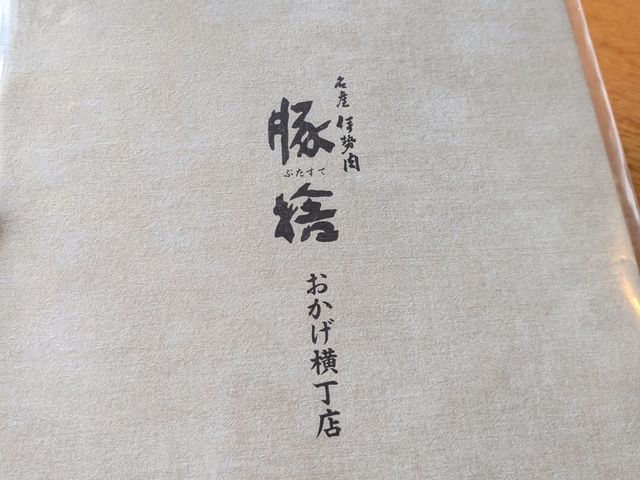 名産 伊勢肉
豚捨
ぶたすて
おかげ横丁店